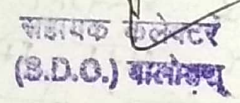 सहायक कलेक्टर
(S.D.O.) बालोतरा